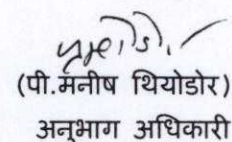 (पी.मनीष थियोडोर)
अनुभाग अधिकारी